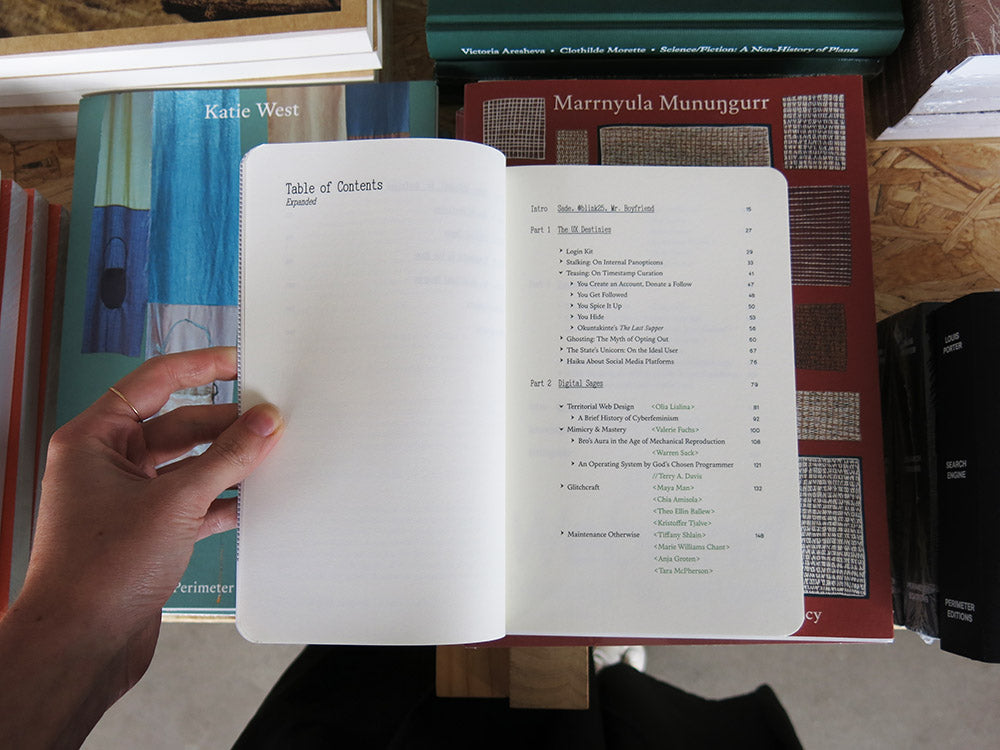 Victoria Aresheva • Clothilde Morette • Science/Fiction: A Non-History of Plants
Katie West
Marrnyula Munuŋgurr
Table of Contents
Expanded
Intro Sade, @blink25, Mr. Boyfriend 15
Part 1 The UX Destinies 27
Login Kit 29
Stalking: On Internal Panopticons 33
Teasing: On Timestamp Curation 41
You Create an Account, Donate a Follow 47
You Get Followed 48
You Spice It Up 50
You Hide 53
Okuntakinte's The Last Supper 56
Ghosting: The Myth of Opting Out 60
The State's Unicorn: On the Ideal User 67
Haiku About Social Media Platforms 76
Part 2 Digital Sages 79
Territorial Web Design <Olia Lialina> 81
A Brief History of Cyberfeminism 92
Mimicry & Mastery <Valerie Fuchs> 100
Bro's Aura in the Age of Mechanical Reproduction 108
<Warren Sack>
An Operating System by God's Chosen Programmer 121
//Terry A. Davis
Glitchcraft <Maya Man> 132
<Chia Amisola>
<Theo Ellin Ballew>
<Kristoffer Tjalve>
Maintenance Otherwise <Tiffany Shlain> 148
<Marie Williams Chant>
<Anja Groten>
<Tara McPherson>
Perimeter
cy
LOUIS
PORTER
SEARCH
ENGINE
PERIMETER
EDITIONS